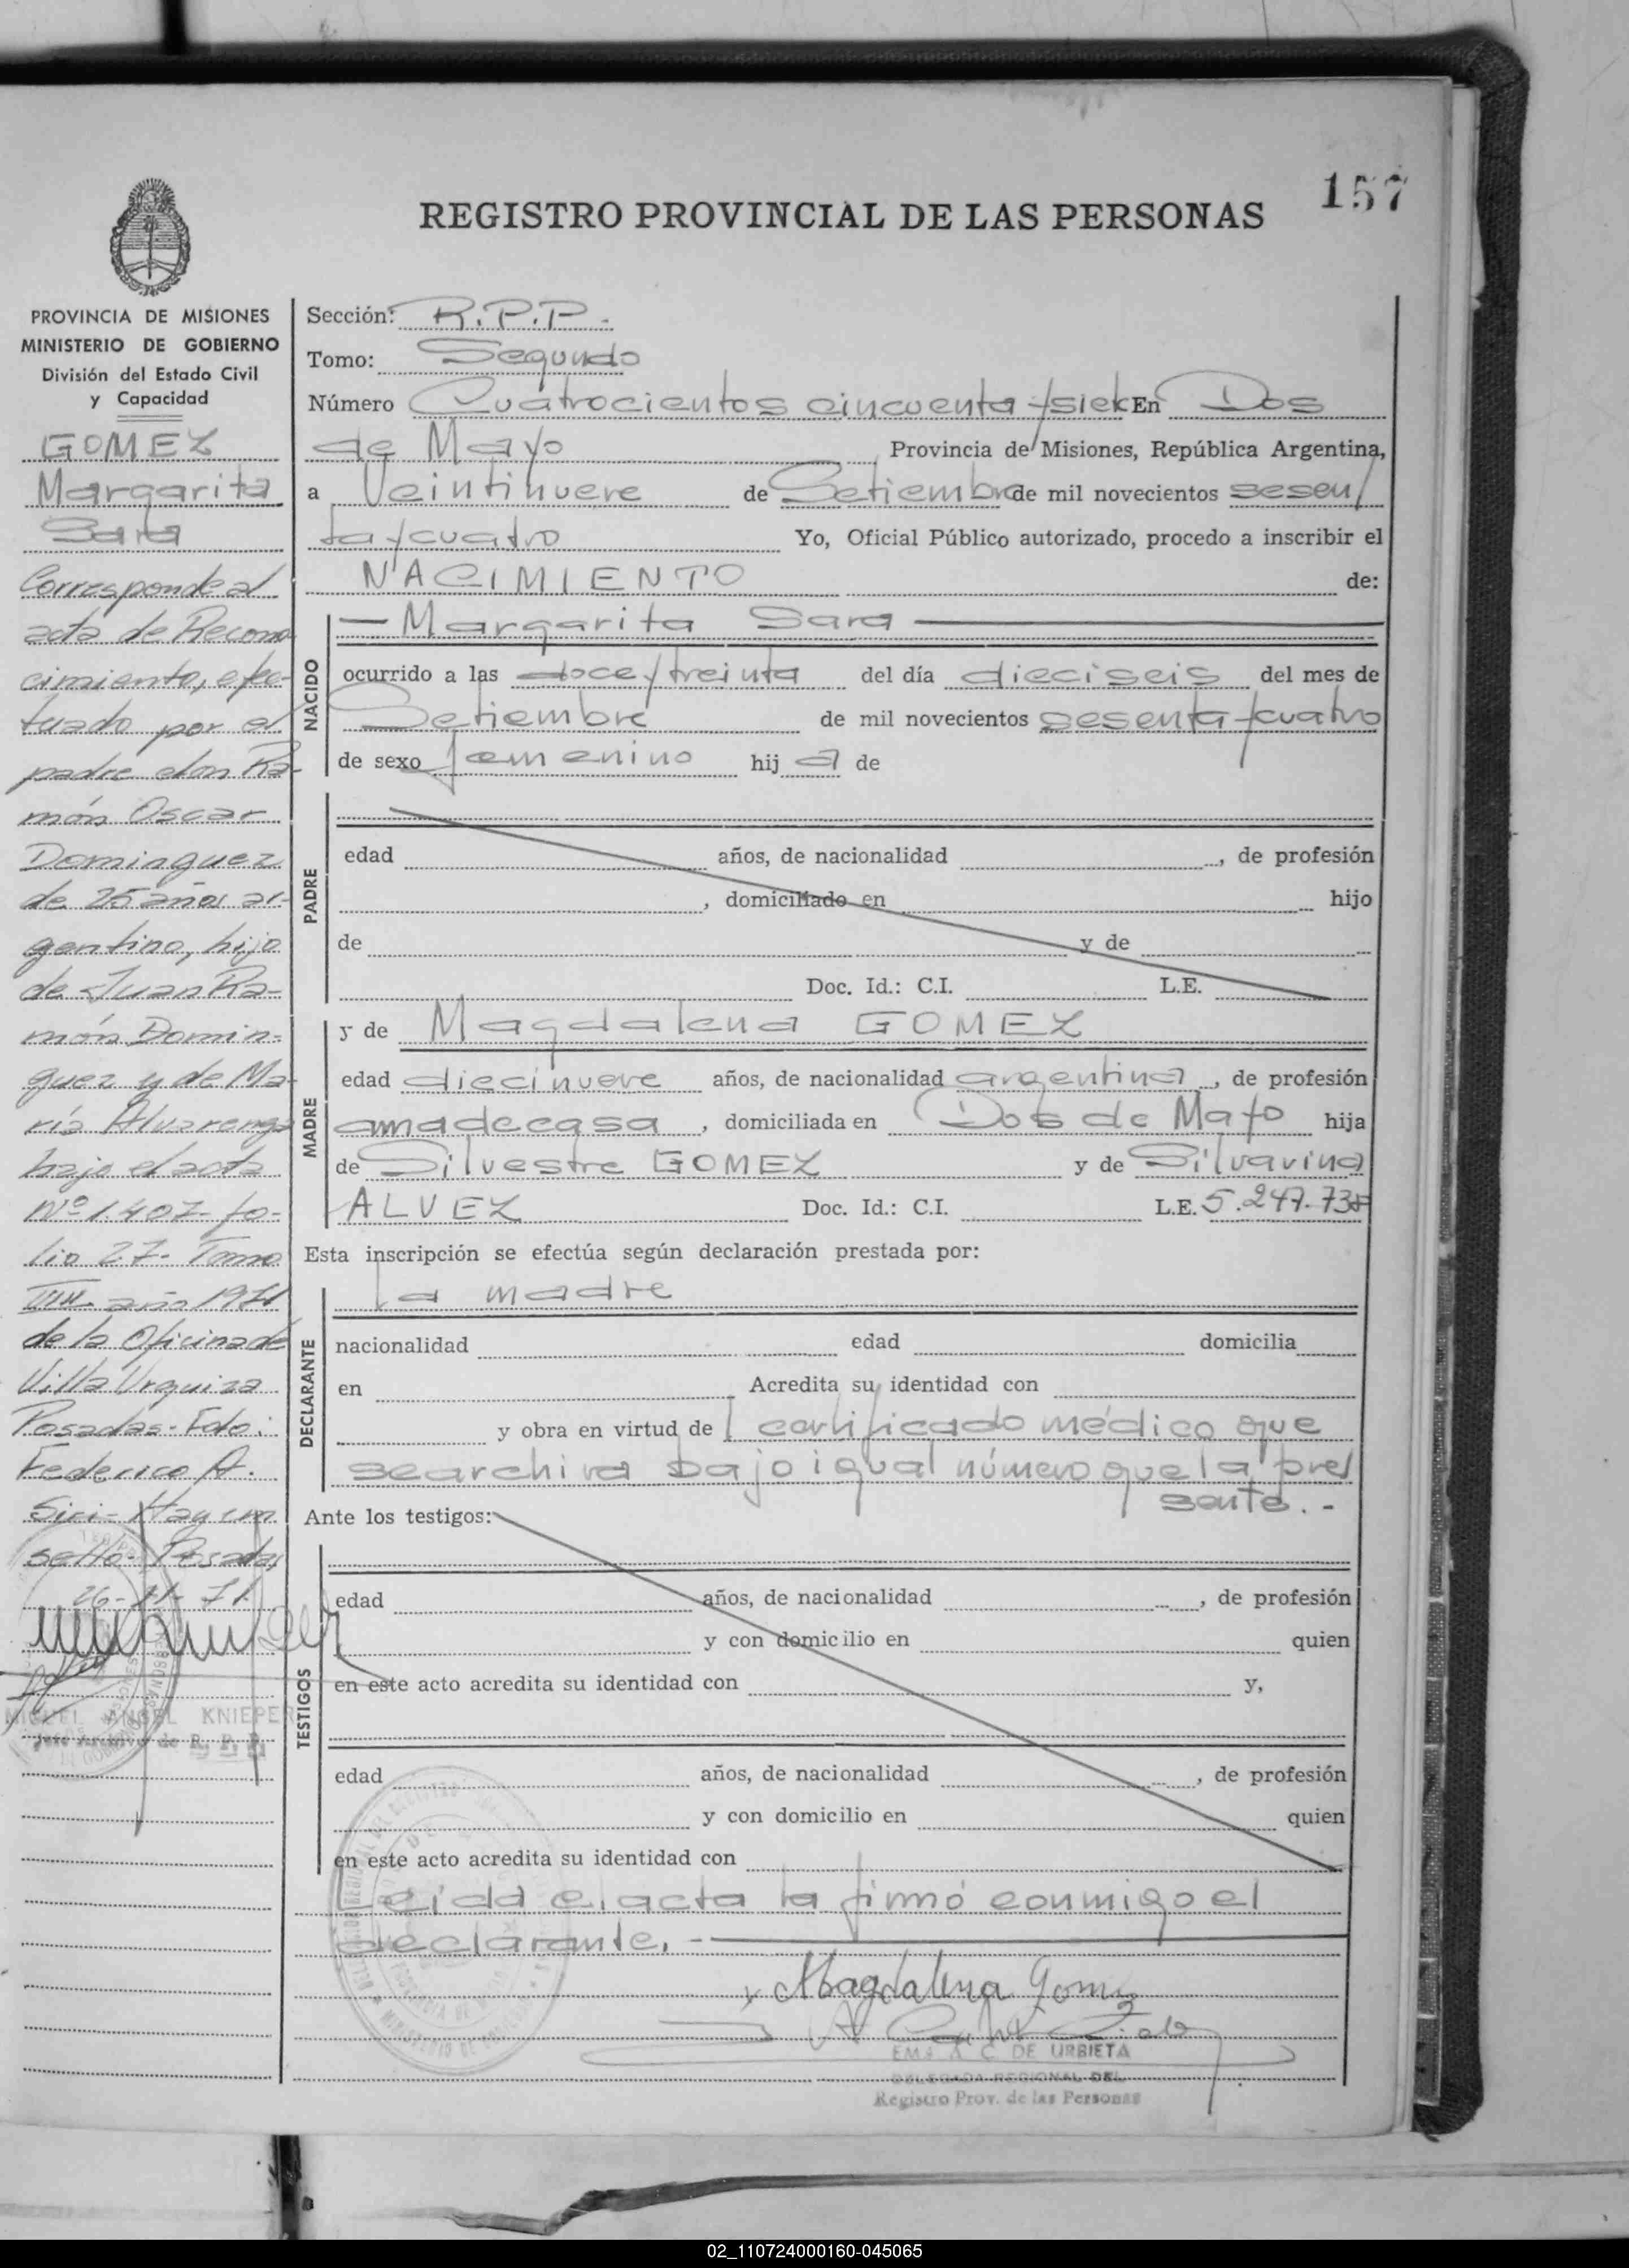 157
REGISTRO PROVINCIAL DE LAS PERSONAS
PROVINCIA DE MISIONES
MINISTERIO DE GOBIERNO
División del Estado Civil
y Capacidad
GOMEZ
Margarita
Sara
Corresponde al
acta de Recono
cimiento, efec-
tuado por el
padre don Ra-
món Oscar
Dominguez
de 25 años ar-
gentino, hijo
de Juan Ra-
món Domin-
guez y de Ma-
ría Alvarenga
bajo el acta
Nº 1.407- fo-
lio 27- Tomo
año 1971
de la Oficina de
Villa Urquiza
Posadas- Fdo:
Federico A.
Siri- Hay un
sello- Posadas,
26-11-71.
MIGUEL ANGEL KNIEPER
Jefe Archivo de R. P. P.
Sección: R.P.P.-
Tomo: Segundo
Número Cuatrocientos cincuenta y siete En Dos
de Mayo Provincia de Misiones, República Argentina,
a Veintinueve de Setiembre de mil novecientos sesen/
ta y cuatro Yo, Oficial Público autorizado, procedo a inscribir el
NACIMIENTO de:
NACIDO
— Margarita Sara —
ocurrido a las doce y treinta del día dieciseis del mes de
Setiembre de mil novecientos sesenta y cuatro
de sexo femenino hij a de
PADRE
edad años, de nacionalidad , de profesión
, domiciliado en hijo
de y de
Doc. Id.: C.I. L.E.
MADRE
y de Magdalena GOMEZ
edad diecinueve años, de nacionalidad argentina , de profesión
ama de casa , domiciliada en Dos de Mayo hija
de Silvestre GOMEZ y de Silvarina
ALVEZ Doc. Id.: C.I. L.E. 5.247.738
Esta inscripción se efectúa según declaración prestada por:
DECLARANTE
La madre
nacionalidad edad domicilia
en Acredita su identidad con
y obra en virtud de l certificado médico que
se archiva bajo igual número que la pre/
sente.-
Ante los testigos:
TESTIGOS
edad años, de nacionalidad , de profesión
y con domicilio en quien
en este acto acredita su identidad con y,
edad años, de nacionalidad , de profesión
y con domicilio en quien
en este acto acredita su identidad con
Leida el acta la firmó conmigo el
declarante.-
Magdalena Gomez
EMA A. C. DE URBIETA
DELEGADA REGIONAL DEL
Registro Prov. de las Personas
02_110724000160-045065